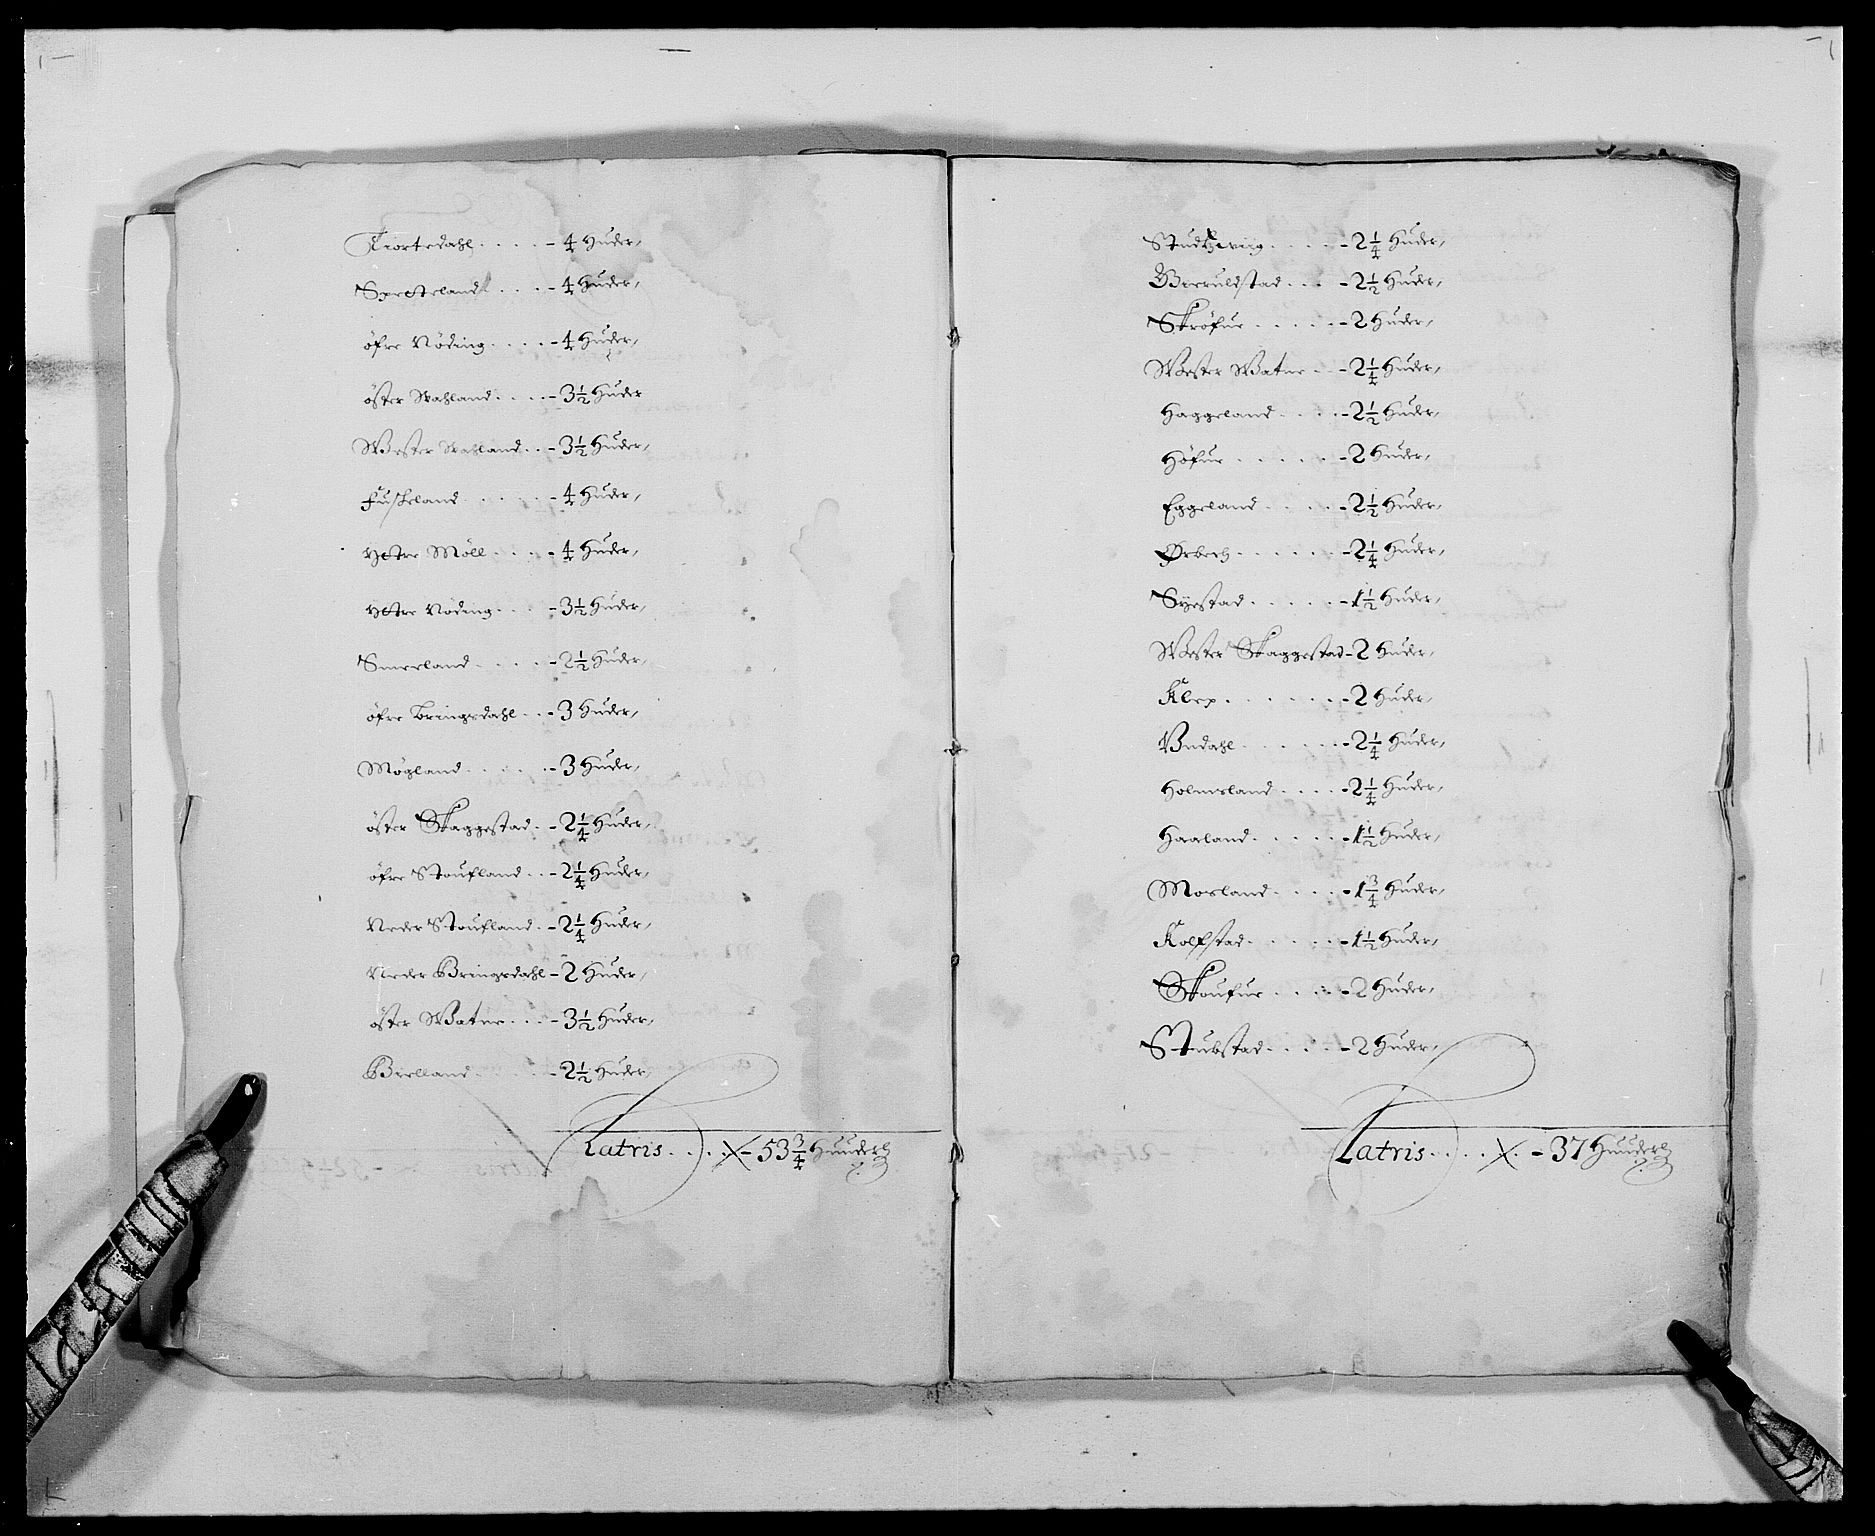 Tiortedahl . . . . - 4 Huder,
Spetteland . . . - 4 Huder,
öfre Nöding . . . . - 4 Huder,
öster Wahland . . . . - 3½ Huder
Wester Wahland . . - 3½ Huder,
Fuskeland . . . . . - 4 Huder,
Ytre Möll . . . . - 4 Huder,
Ytre Nöding . . . - 3½ Huder,
Smeeland . . . . . - 2½ Huder,
öfre Bringsdahl . . - 3 Huder,
Mögland . . . . . - 3 Huder,
öster Skaggestad . - 2¼ Huder,
öfre Stoufland . . - 2¼ Huder,
Neder Stoufland . - 2¼ Huder,
Neder Bringsdahl - 2 Huder,
öster Watne . . . - 3½ Huder,
Bielland . . . . . - 2½ Huder,
Latris . . . . X - 53¾ Huuder
Wiig . . . . . - 2¼ Huder,
Bieruldstad . . . - 2½ Huder,
Skröfue . . . . . - 2 Huder,
Wester Watne . . - 2¼ Huder,
Haggeland . . . . - 2½ Huder,
Höfue . . . . . . - 2 Huder,
Eggeland . . . . . - 2½ Huder,
Ørbech . . . . . . - 2¼ Huder,
Syestad . . . . . - 1½ Huder,
Wester Skaggestad - 2 Huder,
Klep . . . . . . . - 2 Huder,
Undahl . . . . . . - 2¼ Huder,
Holmsland . . . . - 2¼ Huder,
Haaland . . . . . - 1½ Huder,
Mosland . . . . . - 1¾ Huder,
Kolfstad . . . . . - 1½ Huder,
Skoufue . . . . . - 2 Huder,
Stubstad . . . . . - 2 Huder,
Latris . . . . X . - 37 Huuder